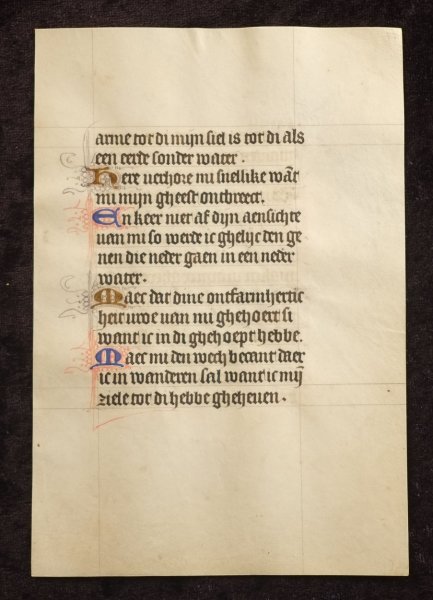 arme tot di mijn siel is tot di als
een eerde sonder water .
Here verhore mi snellike wāt
mi mijn gheest ontbreect.
En keer niet af dijn aensichte
van mi so werde ic ghelijc den ge
nen die neder gaen in een neder
water .
Maec dat dine ontfarmhertic
heit vroe van mi ghehoert si
want ic in di ghehoept hebbe.
Maec mi den wech becant daer
ic in wanderen sal want ic mij
ziele tot di hebbe gheheuen .